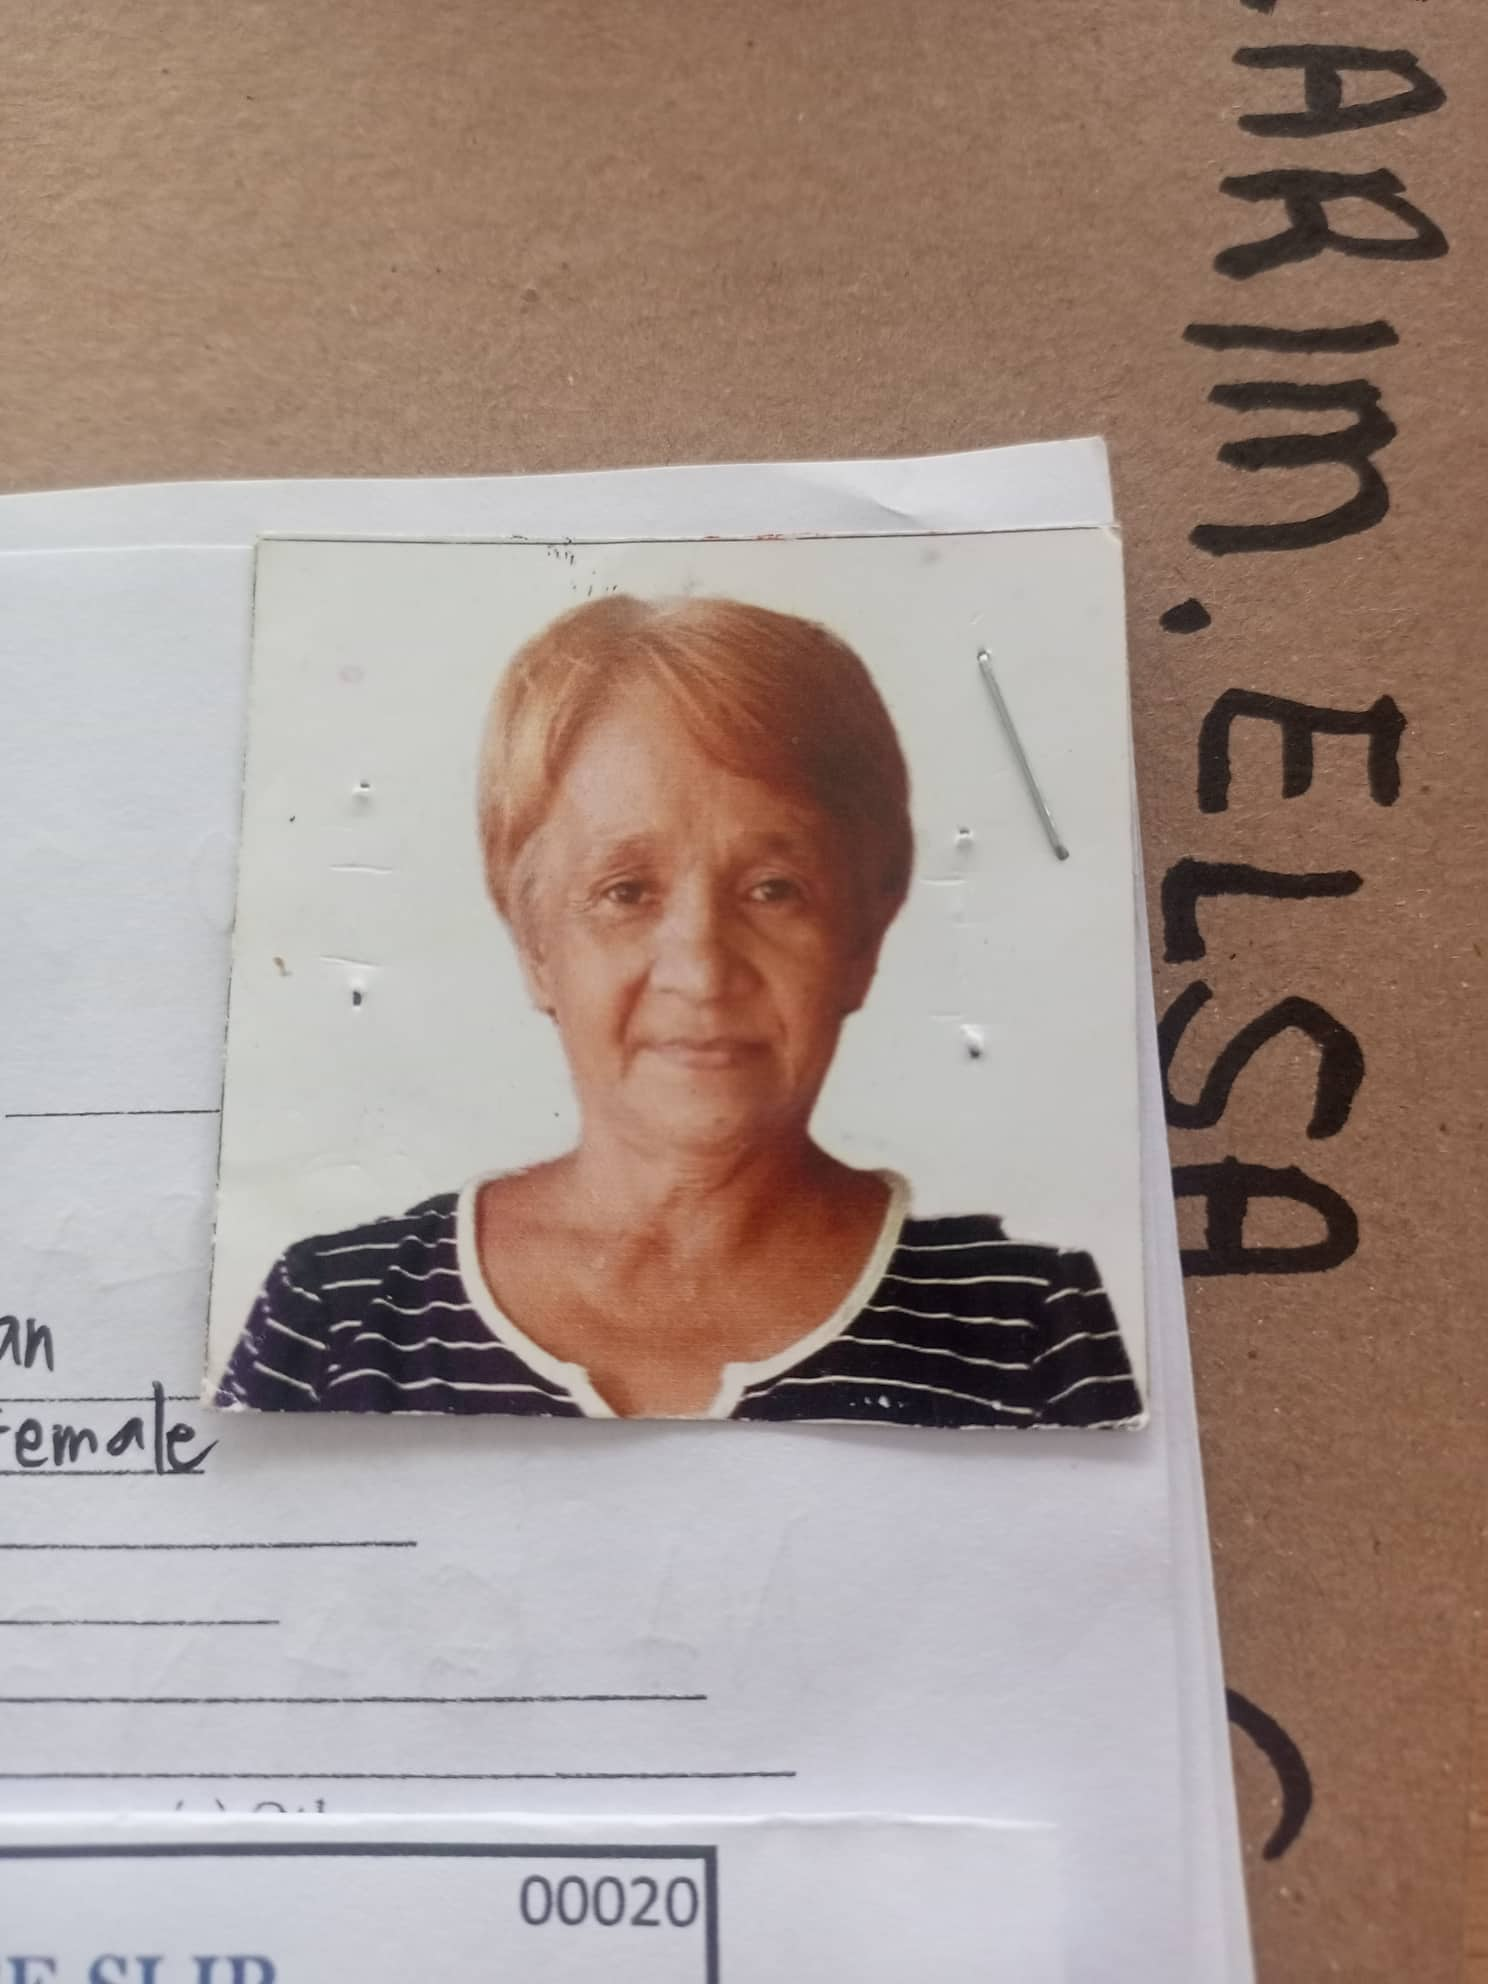 ARIM. ELSA
an
Female
00020
SLIP